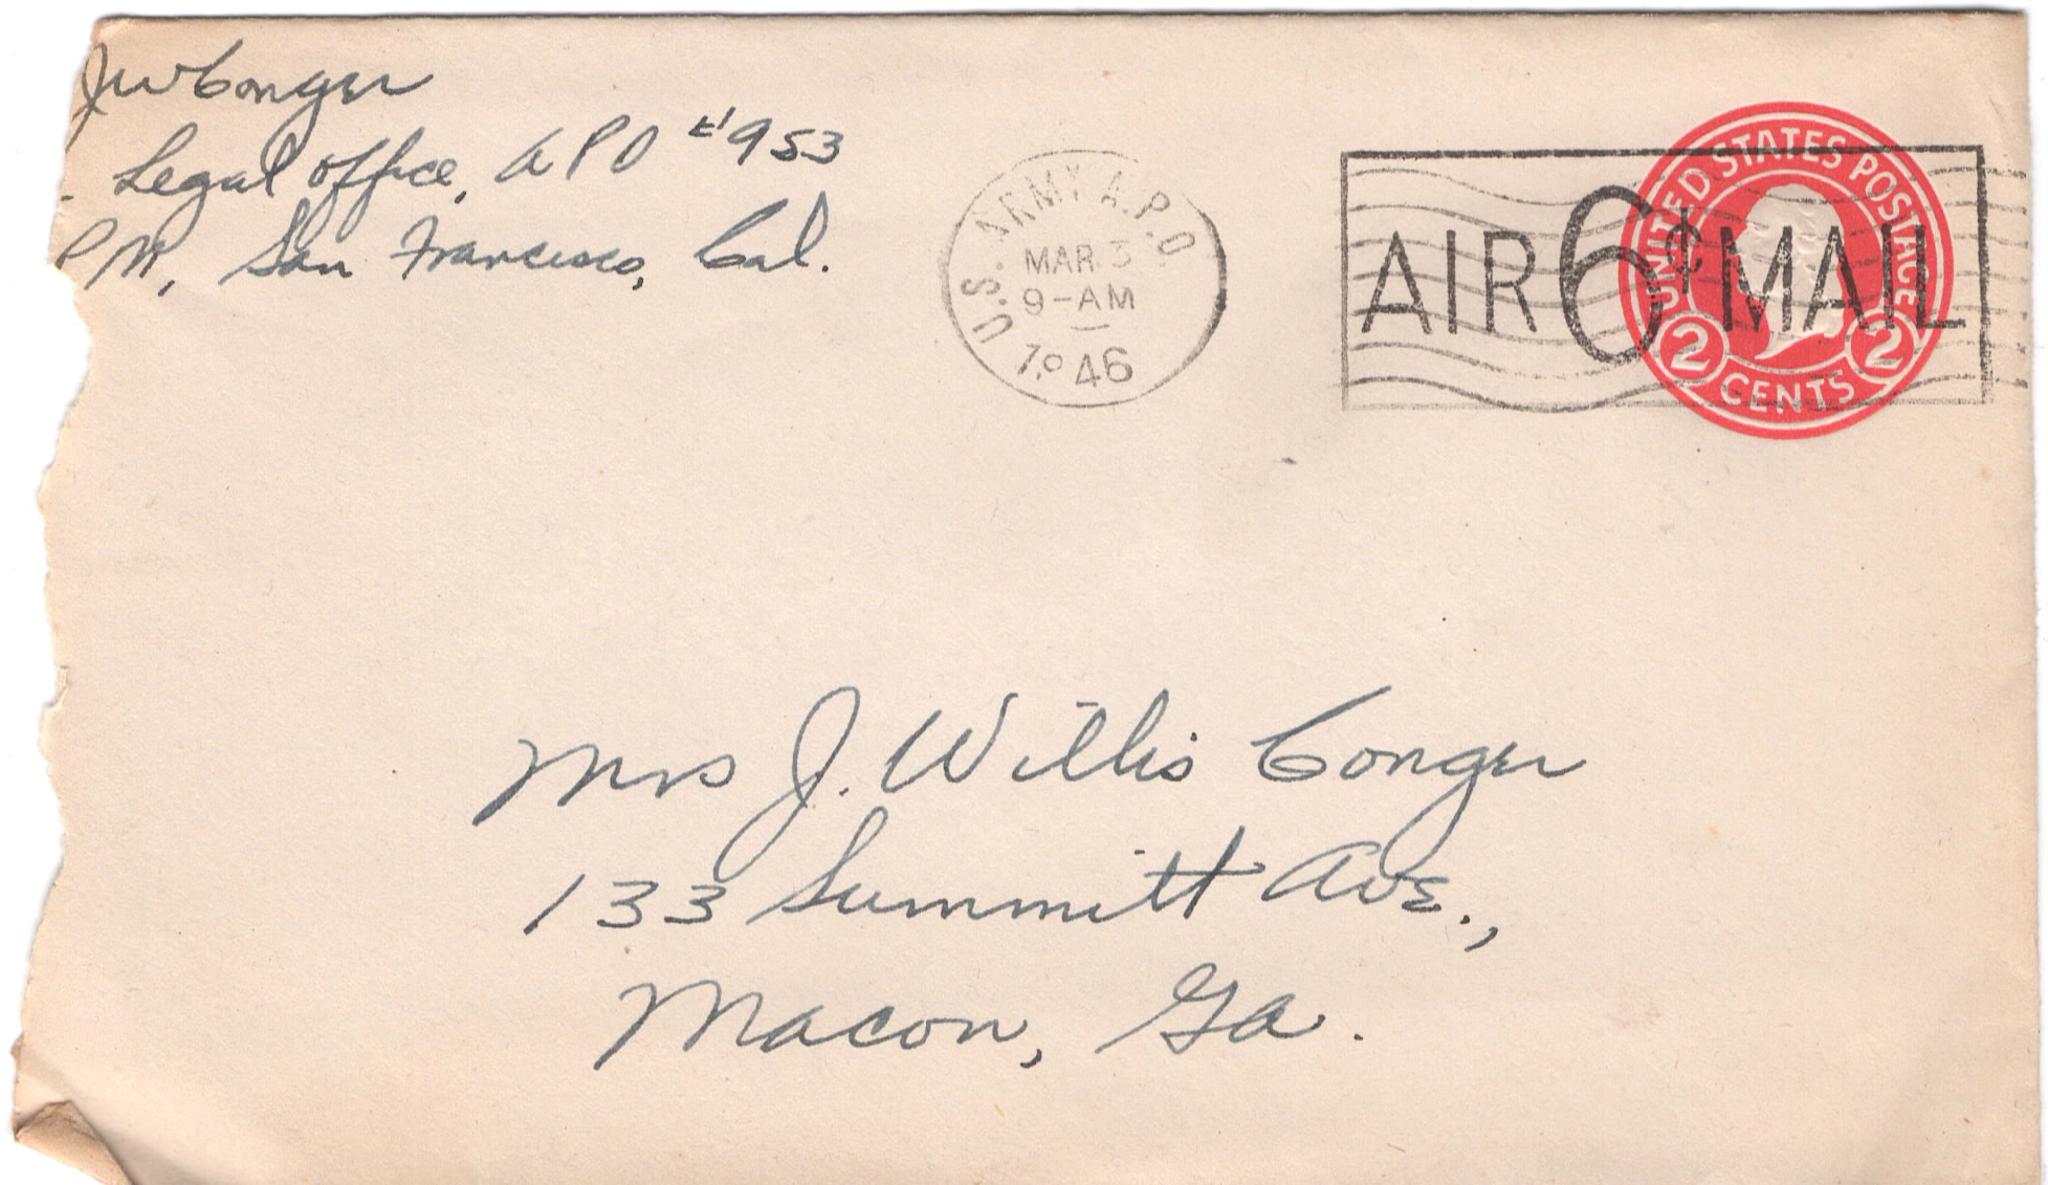 JW Conger
Legal Office, APO #953
PM, San Francisco, Cal.
U.S. ARMY A.P.O
MAR 3
9-AM
46
AIR 6¢ MAIL
UNITED STATES POSTAGE
2 2
CENTS
Mrs J. Willis Conger
133 Summitt Ave.,
Macon, Ga.